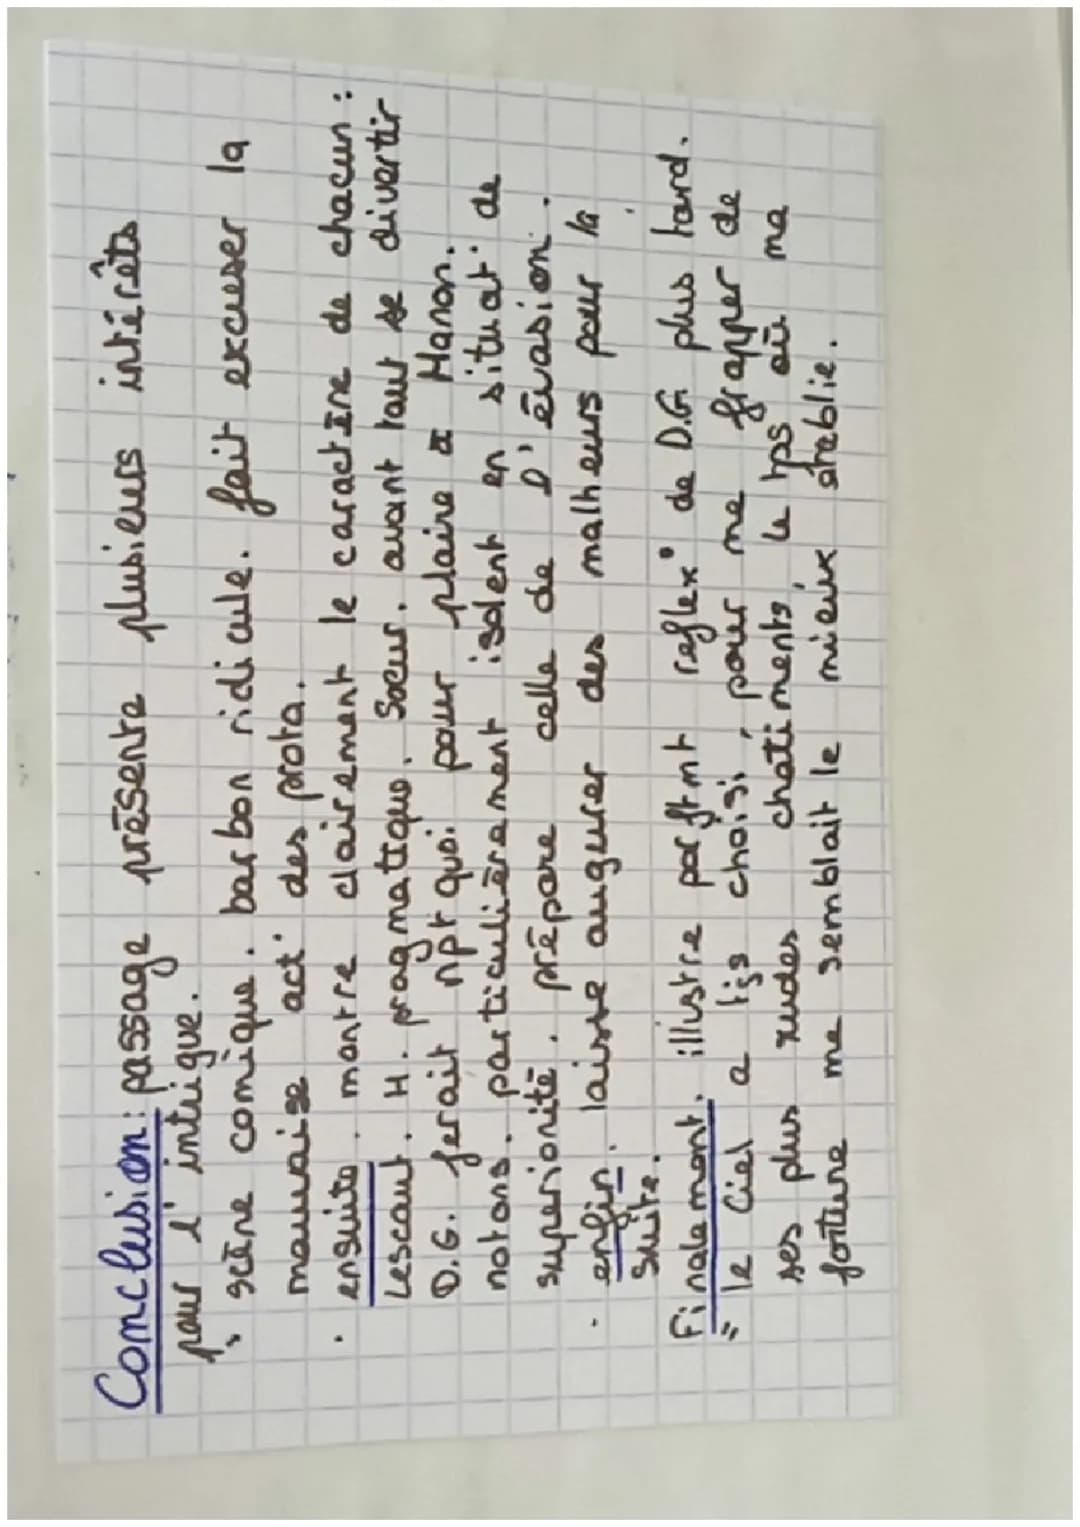 Conclusion : passage présente plusieurs intérêts
pour l'intrigue.
scène comique. barbon ridicule. fait excuser la
mauvaise act° des prota.
. ensuite. montre clairement le caractère de chacun :
Lescaut. H. pragmatique. Soeur. avant tout se divertir
D.G. ferait npt quoi pour plaire à Manon.
notons. particulièrement isolent en situat° de
superiorité. prépare celle de l'évasion.
. enfin. laisse augurer des malheurs pour la
suite.
Finalement. illustre parftmt reflex° de D.G plus tard.
" le Ciel a tjs choisi, pour me frapper de
ses plus rudes chatiments, le tps où ma
fortune me semblait le mieux établie.